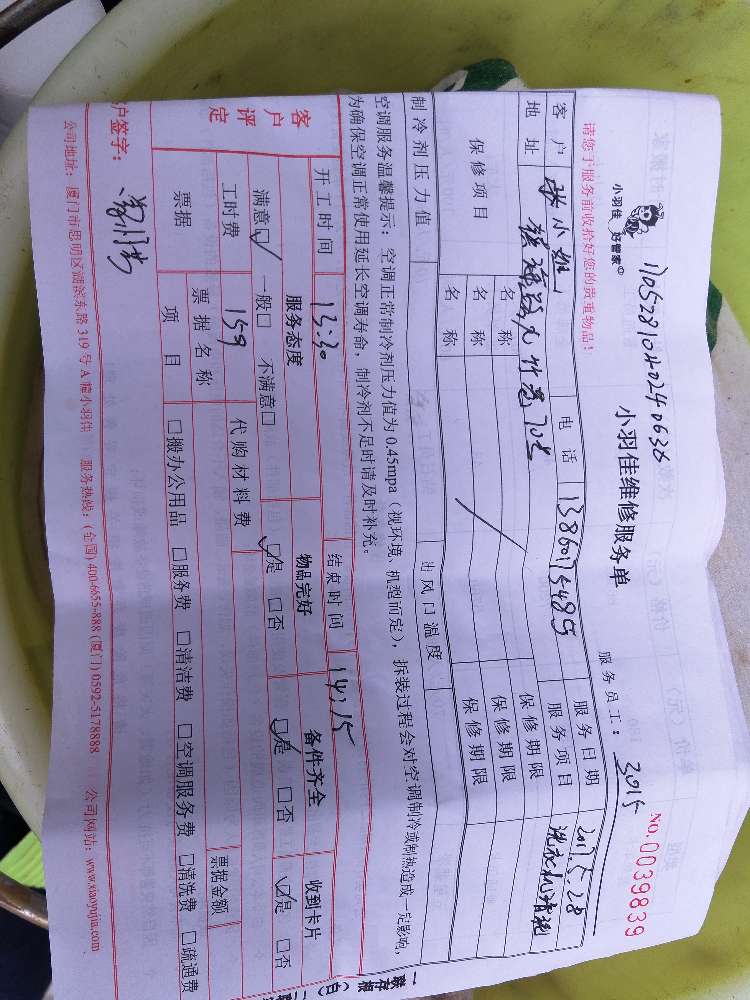 1705281040240638
小羽佳 好管家
小羽佳维修服务单
请您于服务前收拾好您的贵重物品!
服务员工: 3015
NO. 0039839
客户 小姐 电话 13860175489 服务日期 2017.5.28
地址 70号 服务项目 洗衣机清洗
保修项目 名称 保修期限
名称 保修期限
名称 保修期限
制冷剂压力值 出风口温度
空调服务温馨提示: 空调正常制冷剂压力值为0.45mpa (视环境、机型而定), 拆装过程会对空调制冷或制热造成一定影响,
为确保空调正常使用延长空调寿命, 制冷剂不足时请及时补充。
开工时间 13:30 结束时间 14:15
客户评定 服务态度 物品完好 备件齐全 收到卡片
满意☑ 一般☐ 不满意☐ ☑是 ☐否 ☑是 ☐否 ☑是 ☐否
工时费 159 代购材料费
票据 票据名称 票据金额
项目 ☐搬办公用品 ☐服务费 ☐清洁费 ☐空调服务费 ☐清洗费 ☐疏通费
户签字:
公司地址: 厦门市思明区湖滨东路319号A幢小羽佳 服务热线: (全国) 400-6655-888 (厦门) 0592-5178888 公司网站: www.xiaoyujia.com